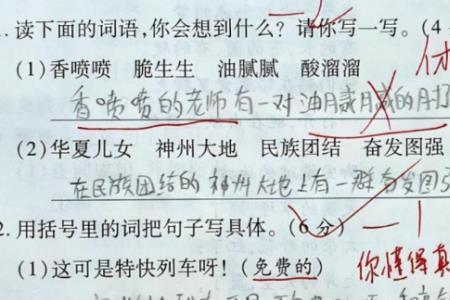 1.读下面的词语,你会想到什么?请你写一写。(4
(1)香喷喷 脆生生 油腻腻 酸溜溜
香喷喷的老师有一对油月戚月戚的月打
(2)华夏儿女 神州大地 民族团结 奋发图强
在民族团结的神州大地上有一群奋发图
2.用括号里的词把句子写具体。(6分) 一1
(1)这可是特快列车呀!(免费的) 你懂得真